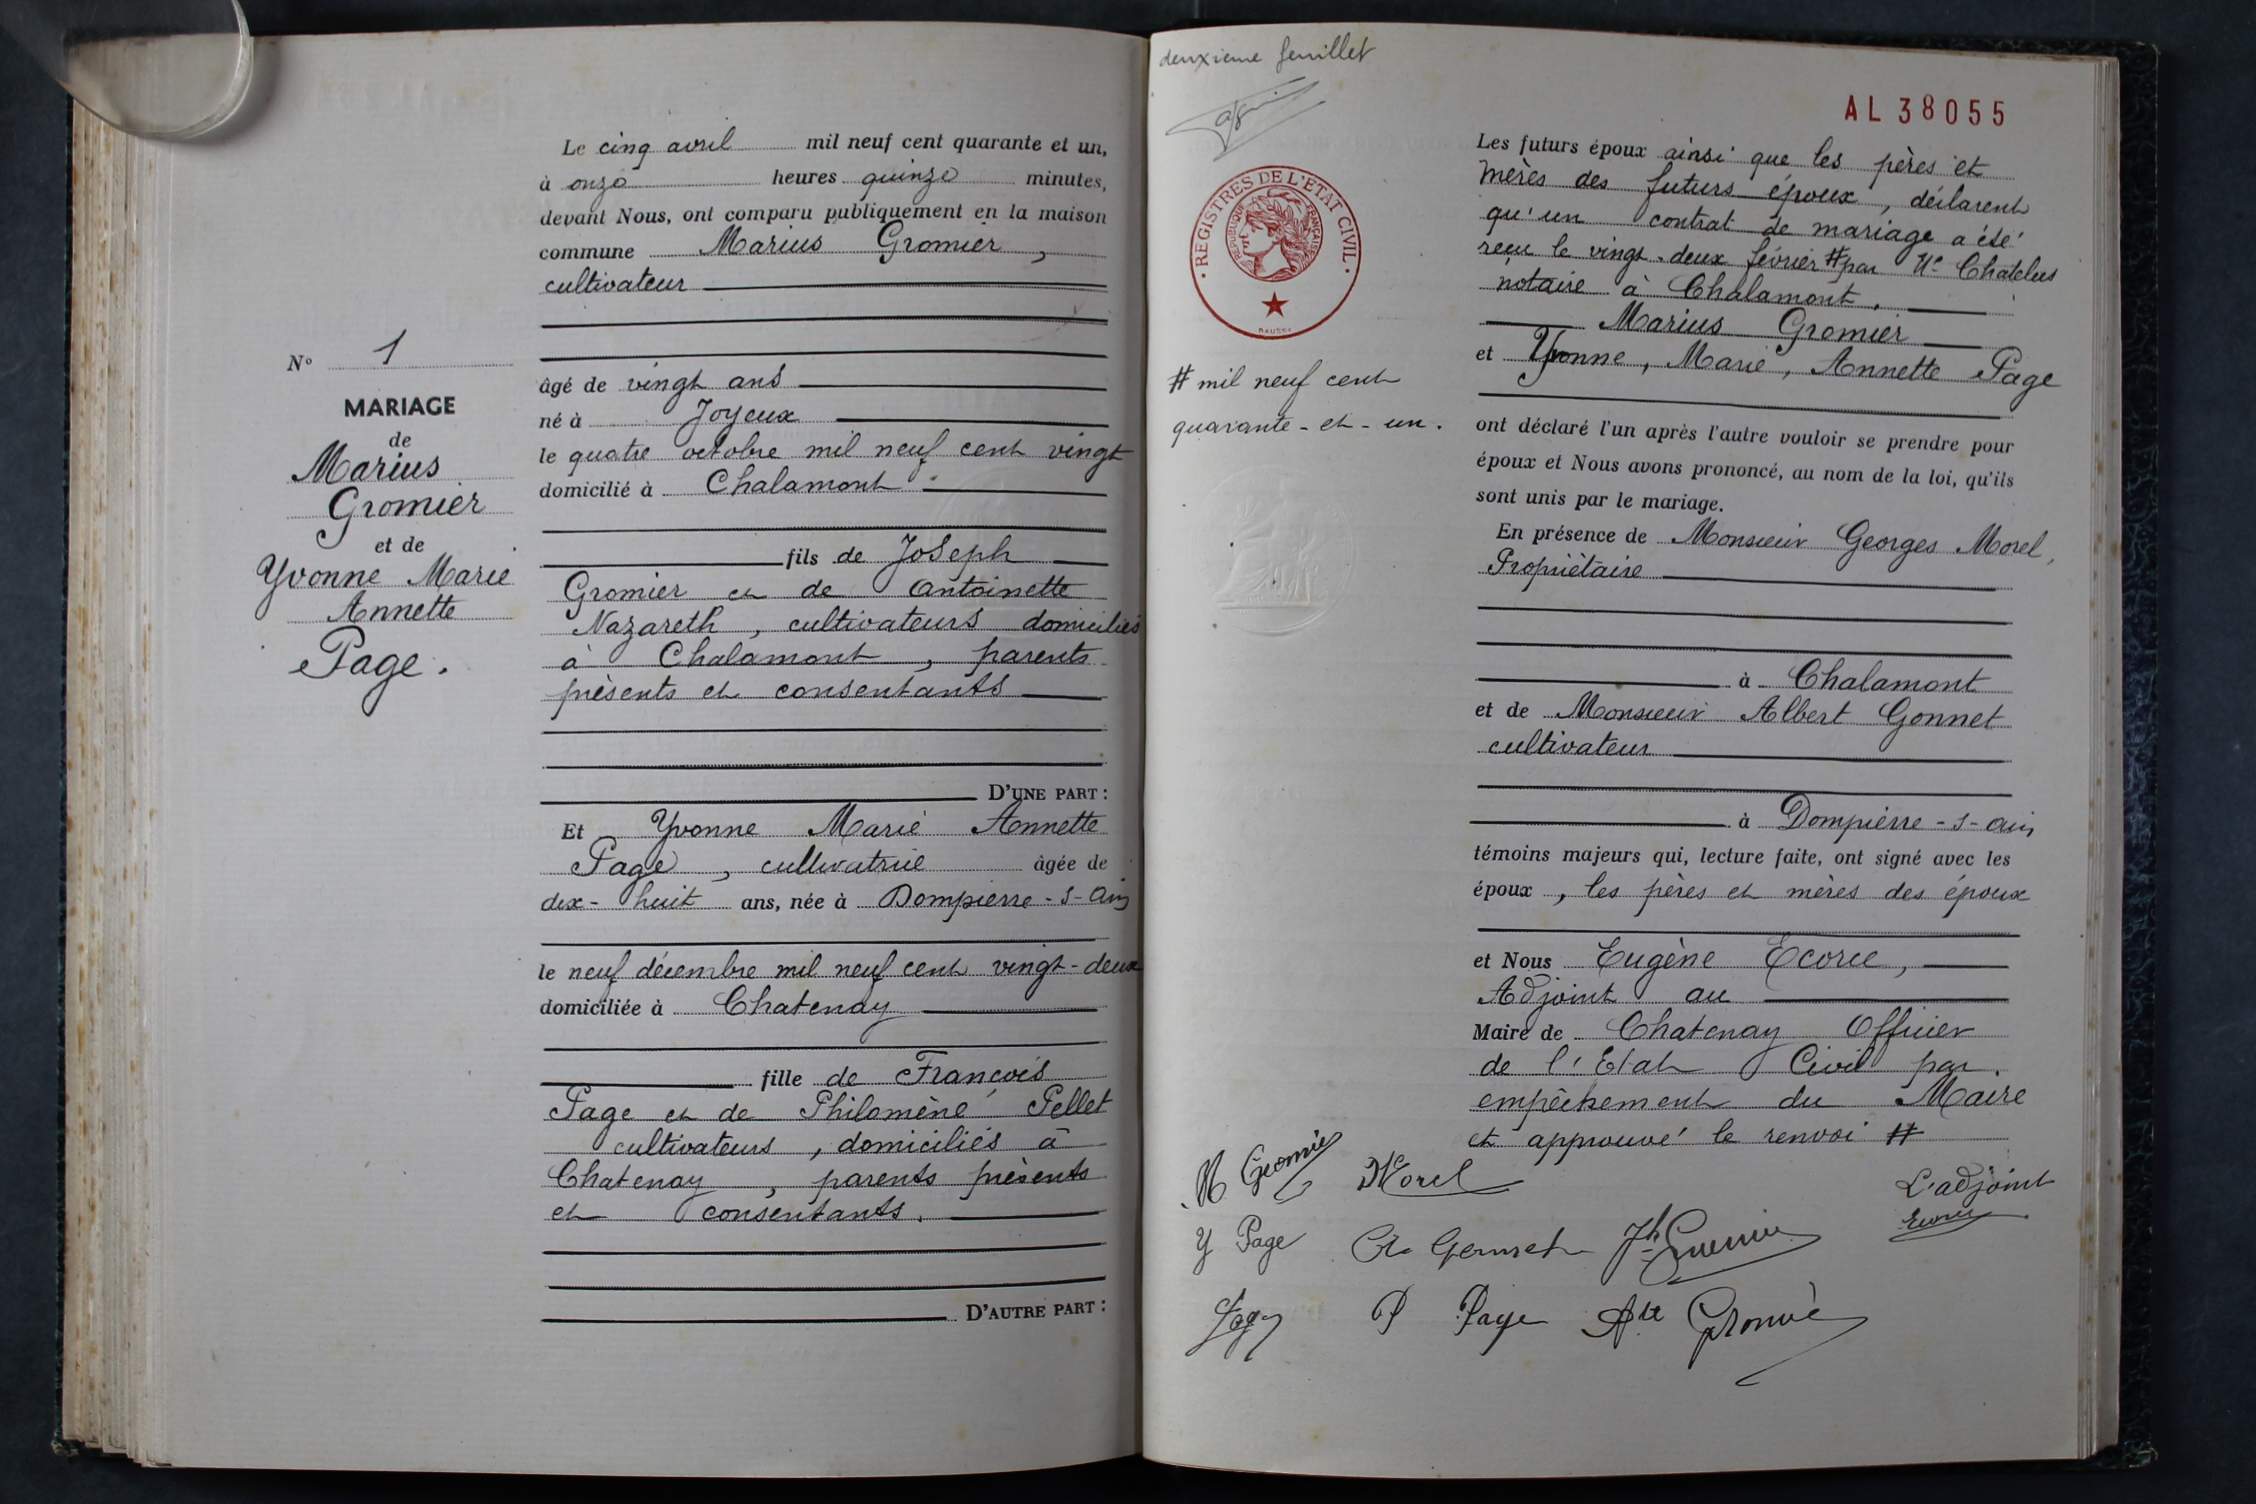 N° 1
MARIAGE
de
Marius
Gromier
et de
Yvonne Marie
Annette
Page.
Le cinq avril mil neuf cent quarante et un,
à onze heures quinze minutes,
devant Nous, ont comparu publiquement en la maison
commune Marius Gromier,
cultivateur
âgé de vingt ans
né à Joyeux
le quatre octobre mil neuf cent vingt
domicilié à Chalamont
fils de Joseph
Gromier et de Antoinette
Nazareth, cultivateurs domiciliés
à Chalamont, parents
présents et consentants
D'UNE PART :
Et Yvonne Marie Annette
Page, cultivatrice âgée de
dix-huit ans, née à Dompierre-s-Ain
le neuf décembre mil neuf cent vingt-deux
domiciliée à Chatenay
fille de François
Page et de Philomène Pellet
cultivateurs, domiciliés à
Chatenay, parents présents
et consentants.
D'AUTRE PART :
deuxième feuillet
AL 38055
REGISTRES DE L'ÉTAT CIVIL
RÉPUBLIQUE FRANÇAISE
# mil neuf cent
quarante-et-un.
Les futurs époux ainsi que les pères et
mères des futurs époux, déclarent
qu'un contrat de mariage a été
reçu le vingt-deux février # par Me Chatelus
notaire à Chalamont.
Marius Gromier
et Yvonne, Marie, Annette Page
ont déclaré l'un après l'autre vouloir se prendre pour
époux et Nous avons prononcé, au nom de la loi, qu'ils
sont unis par le mariage.
En présence de Monsieur Georges Morel,
Propriétaire
à Chalamont
et de Monsieur Albert Gonnet
cultivateur
à Dompierre-s-Ain
témoins majeurs qui, lecture faite, ont signé avec les
époux, les pères et mères des époux
et Nous Eugène Ecorce,
Adjoint au
Maire de Chatenay Officier
de l'Etat Civil par
empêchement du Maire
et approuvé le renvoi #
M Gromier Morel L'adjoint
Y Page
Page P Page Ate Gromier